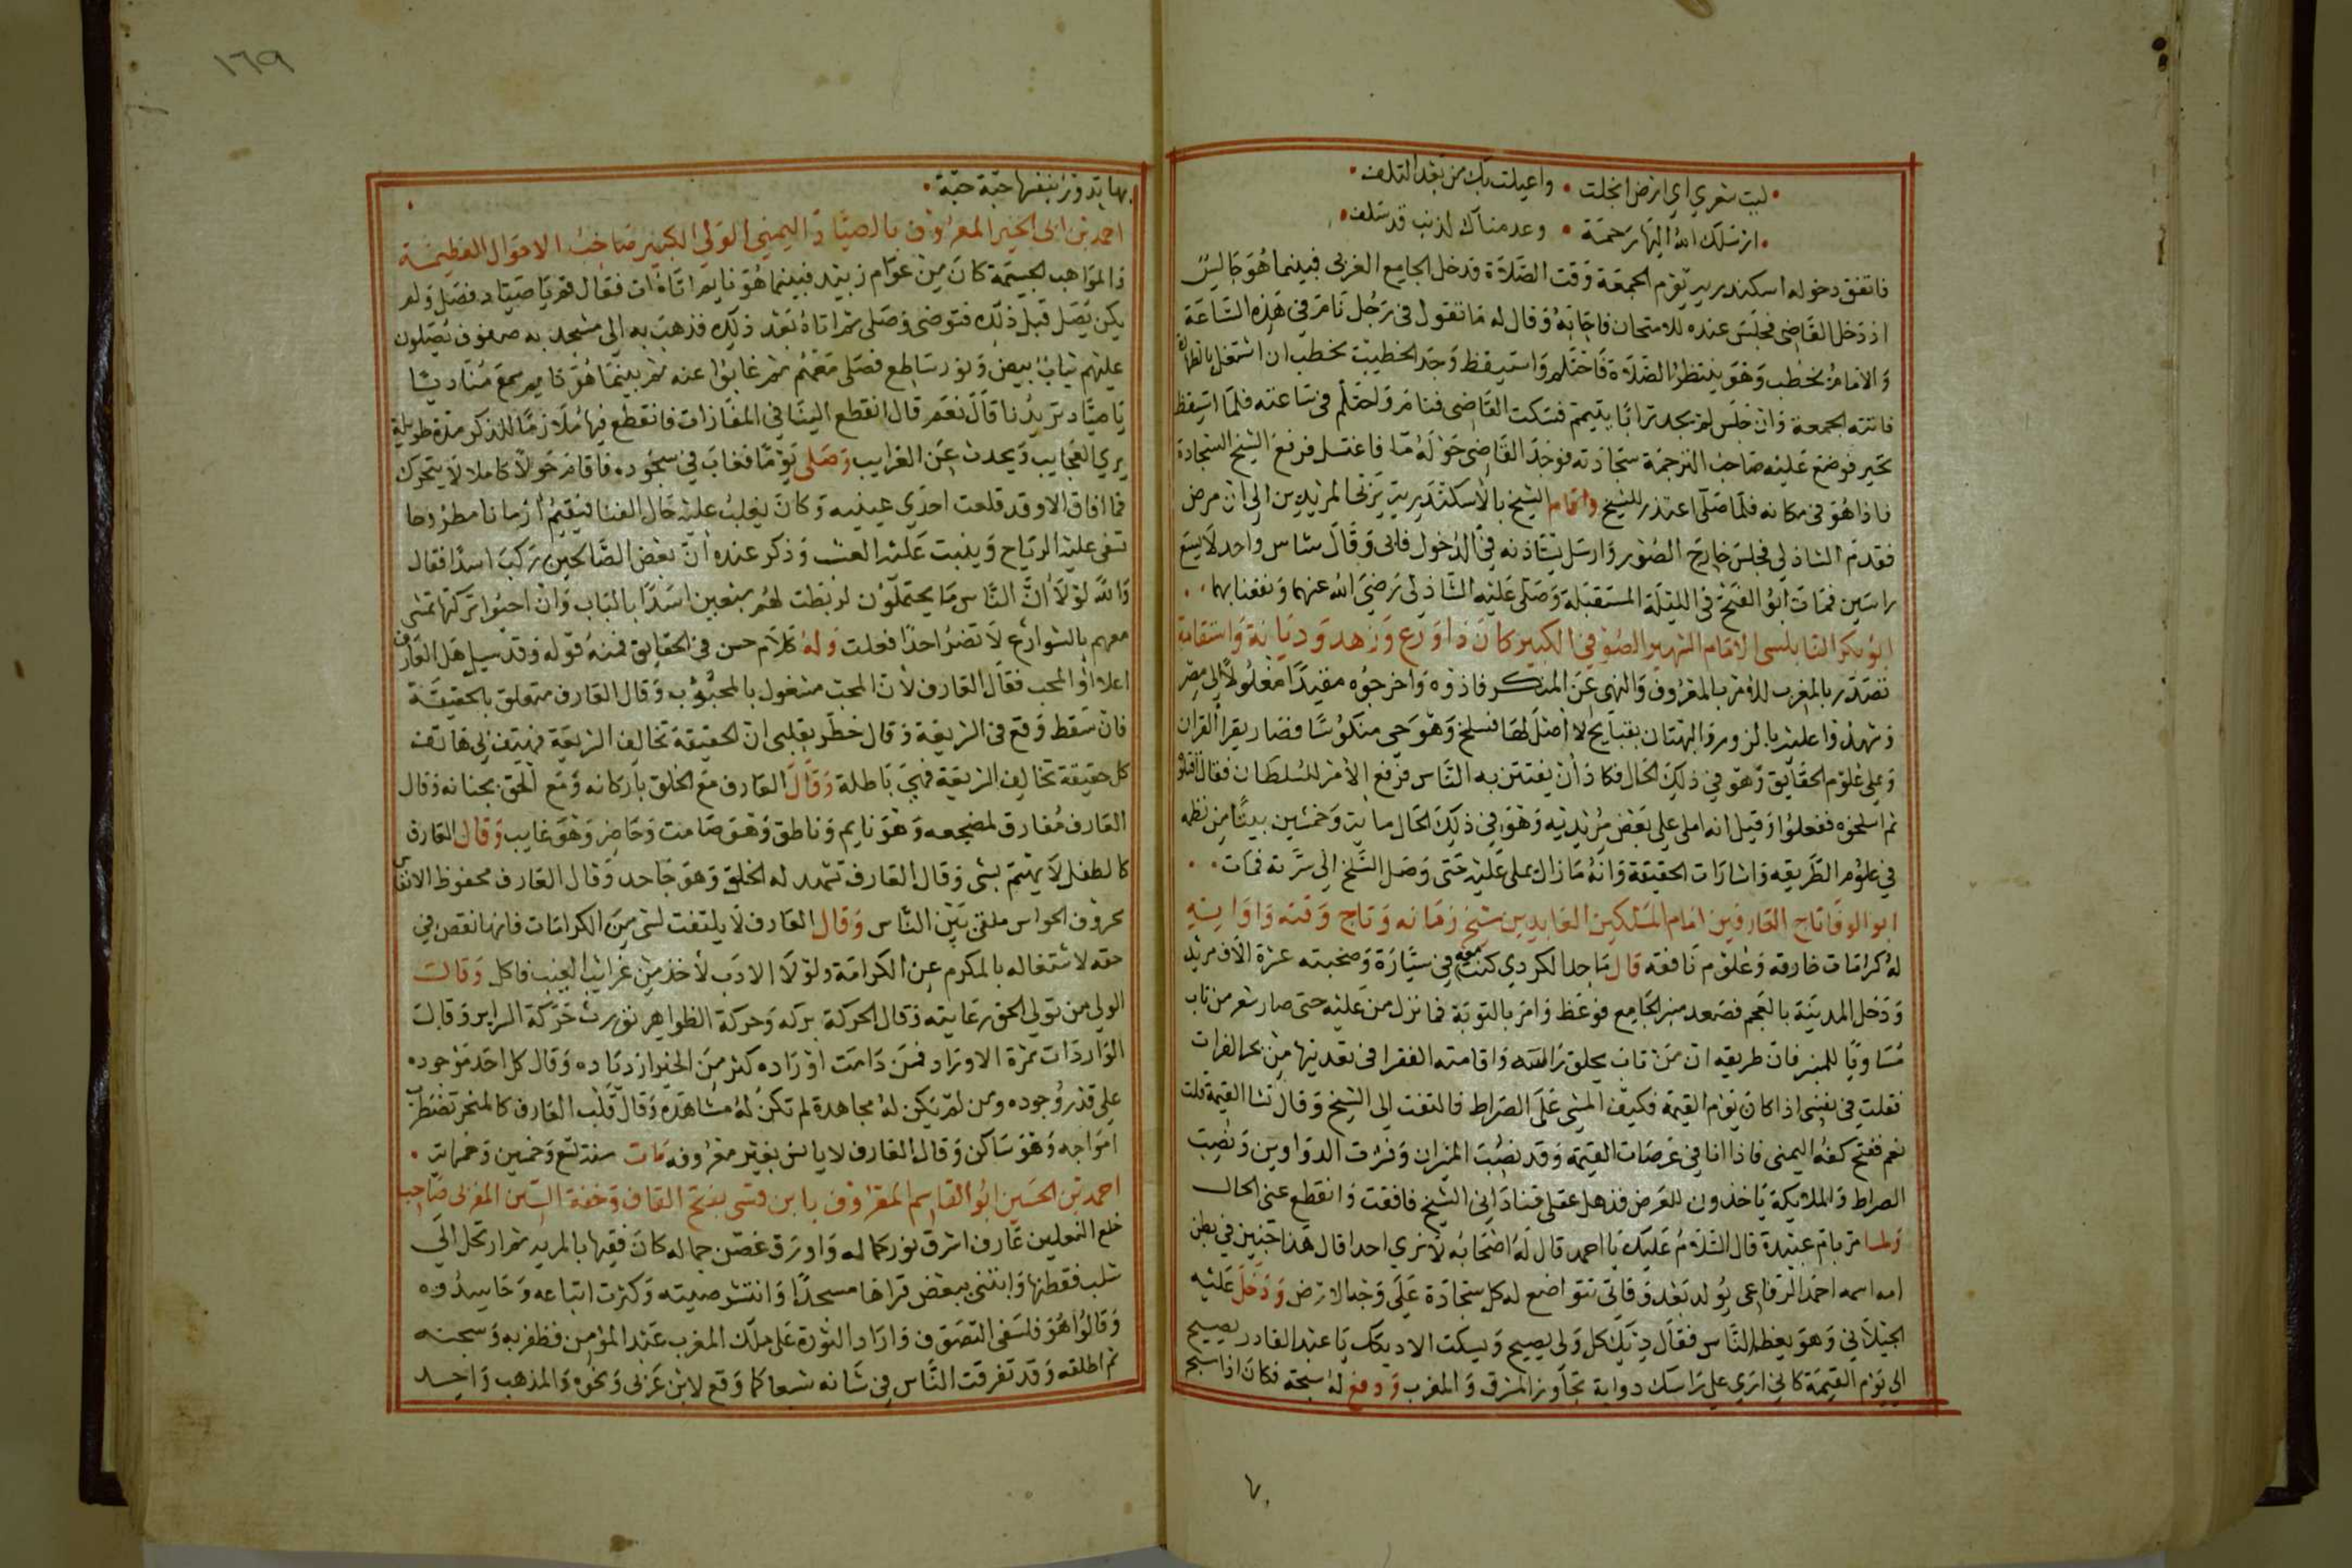 ليت شعري اي ارض امحلت • واغيثت بك من بعد التلف
ارسلك الله اليها رحمة • وعدمناك لذنب قد سلف
فاتفق دخوله اسكندرية يوم الجمعة وقت الصلاة فدخل الجامع الغربي فبينما هو جالس
اذ دخل القاضي فجلس عنده للامتحان فاجابه وقال له ما تقول في رجل نام في هذه الساعة
والامام يخطب وهو ينتظر الصلاة فاحتلم واستيقظ وجد الخطيب يخطب ان اشتغل بالطهارة
فاتته الجمعة وان جلس لم يجد ترابا يتيمم فسكت القاضي فنام واحتلم في ساعته فلما استيقظ
تحير فوضع عليه صاحب الترجمة سجادته فوجد القاضي حوله ما فاغتسل فرفع الشيخ السجادة
فاذا هو في مكانه فلما صلى اعتذر للشيخ واقام الشيخ بالاسكندرية يربي المريدين الي ان مرض
فقدم الشاذلي فجلس خارج الصور وارسل يستاذنه في الدخول فابى وقال شاس واحد لا يسع
راسين فمات ابو الفتح في الليلة المستقبلة وصلى عليه الشاذلي رضي الله عنهما ونفعنا بهما
ابو بكر النابلسي الامام الشهير الصوفي الكبير كان ذا ورع وزهد وديانة واستقامة
تصدر بالمغرب للامر بالمعروف والنهي عن المنكر فاذوه واخرجوه مقيدا مغلولا الي مصر
وشهدوا عليه بالزور والبهتان بقبايح لا اصل لها فسلخ وهو حي منكوسا فصار يقرا القران
ويملي علوم الحقايق وهو في ذلك الحال فكاد ان يفتتن به الناس فرفع الامر للسلطان فقال اقتلوه
ثم اسلخوه ففعلوا وقيل انه املى على بعض مريديه وهو في ذلك الحال مايتي وخمسين بيتا من نظمه
في علوم الطريقه واشارات الحقيقة وانه مازال يملي عليه حتى وصل السلخ الي سرته فمات
ابو الوفا تاج العارفين امام المسلكين العابدين شيخ زمانه وتاج وقته واوانه
له كرامات خارقه وعلوم نافعه قال ماجد الكردي كنت معه في سيارة وصحبته عشرة الاف مريد
ودخل المدينة بالعجم فصعد منبر الجامع فوعظ وامر بالتوبة فما نزل من عليه حتى صار شعر من تاب
مساويا للمنبر فان طريقه ان من تاب يحلق راسه واقامته الفقرا في تعديتها من بحر الفرات
فقلت في نفسي اذا كان يوم القيمة فكيف المشي على الصراط فالتفت الي الشيخ وقال تشا القيمة قلت
نعم ففتح كفه اليمنى فاذا انا في عرصات القيمة وقد نصبت الميزان ونشرت الدواوين ونصبت
الصراط والملايكة ياخذون للعرض فذهل عقلي فناداني الشيخ فافقت وانقطع عني الحال
ولما مر بام عبيدة قال السلام عليك يا احمد قال له اصحابه لا نري احدا قال هذا جنين في بطن
امه اسمه احمد الرفاعي يولد بعد وفاتي تتواضع له كل سجادة على وجه الارض ودخل عليه
الجيلاني وهو يعظ الناس فقال ديك كل ولي يصيح ويسكت الا ديكك يا عبد القادر يصيح
الي يوم القيمة كاني اري على راسك دوابة تجاوز المشرق والمغرب ودفع له سبحة فكان اذا سبح
بها
١٦٩
بها تدور بنفسها حبة حبة
احمد بن ابي الخير المعروف بالصياد اليمني الولي الكبير صاحب الاحوال العظيمة
والمواهب الجسيمة كان من عوام زبيد فبينما هو نايم اتاه ات فقال قم يا صياد فصل ولم
يكن يصل قبل ذلك فتوضى وصلى ثم اتاه بعد ذلك فذهب به الي مسجد به صفوف يصلون
عليهم ثياب بيض ونور ساطع فصلى معهم ثم غابوا عنه ثم بينما هو قايم سمع مناديا
يا صياد تريدنا قال نعم قال انقطع الينا في المفازات فانقطع فيها ملازما للذكر مدة طويلة
يري العجايب ويحدث عن الغرايب وصلى يوما فغاب في سجوده فاقام حولا كاملا لا يتحرك
فما افاق الا وقد قلعت احدي عينيه وكان يغلب عليه حال الفنا فيقيم ازمانا مطروحا
تسفي عليه الرياح وينبت عليه العشب وذكر عنده ان بعض الصالحين ركب اسدا فقال
والله لولا ان الناس ما يحتملون لربطت لهم سبعين اسدا بالباب وان احبوا تركتها تمشي
معهم بالشوارع لا تضر احدا فعلت وله كلام حسن في الحقايق فمنه قوله وقد سيل هل العارف
اعلا او المحب فقال العارف لان المحب مشغول بالمحبوب وقال العارف متعلق بالحقيقة
فان سقط وقع في الشريعة وقال خطر بقلبي ان الحقيقة تخالف الشريعة فهتف لي هاتف
كل حقيقة تخالف الشريعة فهي باطلة وقال العارف مع الخلق باركانه ومع الحق بجنانه وقال
العارف مفارق لمضجعه وهو نايم وناطق وهو صامت وحاضر وهو غايب وقال العارف
كالطفل لا يهتم بشي وقال العارف تشهد له الخلق وهو جاحد وقال العارف محفوظ الانفاس
محروف الحواس ملقى بين الناس وقال العارف لا يلتفت لشي من الكرامات فانها نقص في
حقه لاشتغاله بالمكرم عن الكرامة ولولا الادب لاخذ من غرايب الغيب فاكل وقال
الولي من تولي الحق رعايته وقال الحركة بركه وحركة الظواهر تورث حركة السراير وقال
الواردات ثمرة الاوراد فمن دامت اوراده كثر من الخير ازدياده وقال كل احد موجوده
على قدر وجوده ومن لم يكن له مجاهدة لم تكن له مشاهدة وقال قلب العارف كالبحر تضطرب
امواجه وهو ساكن وقال العارف لا يانس بغير معروفه مات سنة تسع وخمسين وخمماية
احمد بن الحسين ابو القاسم المعروف بابن قسي بفتح القاف وخفة السين المغربي صاحب
خلع النعلين عارف اشرق نور كماله واورق غصن جماله كان فقيها بالمريه ثم ارتحل الي
شلب فقطنها وابتنى ببعض قراها مسجدا وانتشر صيته وكثرت اتباعه وحاسدوه
وقالوا هو فلسفي التصوف واراد الثورة على ملك المغرب عبد المومن فظفر به وسجنه
ثم اطلقه وقد تفرقت الناس في شانه شيعا كما وقع لابن عربي ونحوه والمذهب واحد